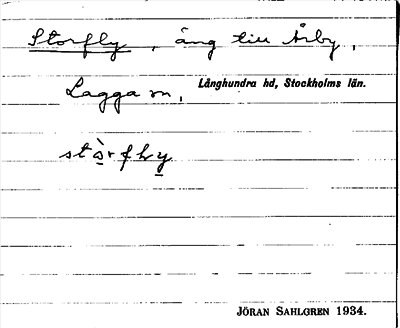 Storfly, äng till Årby,
Lagga sn, Långhundra hd, Stockholms län.
stò̱rfly̱
JÖRAN SAHLGREN 1934.